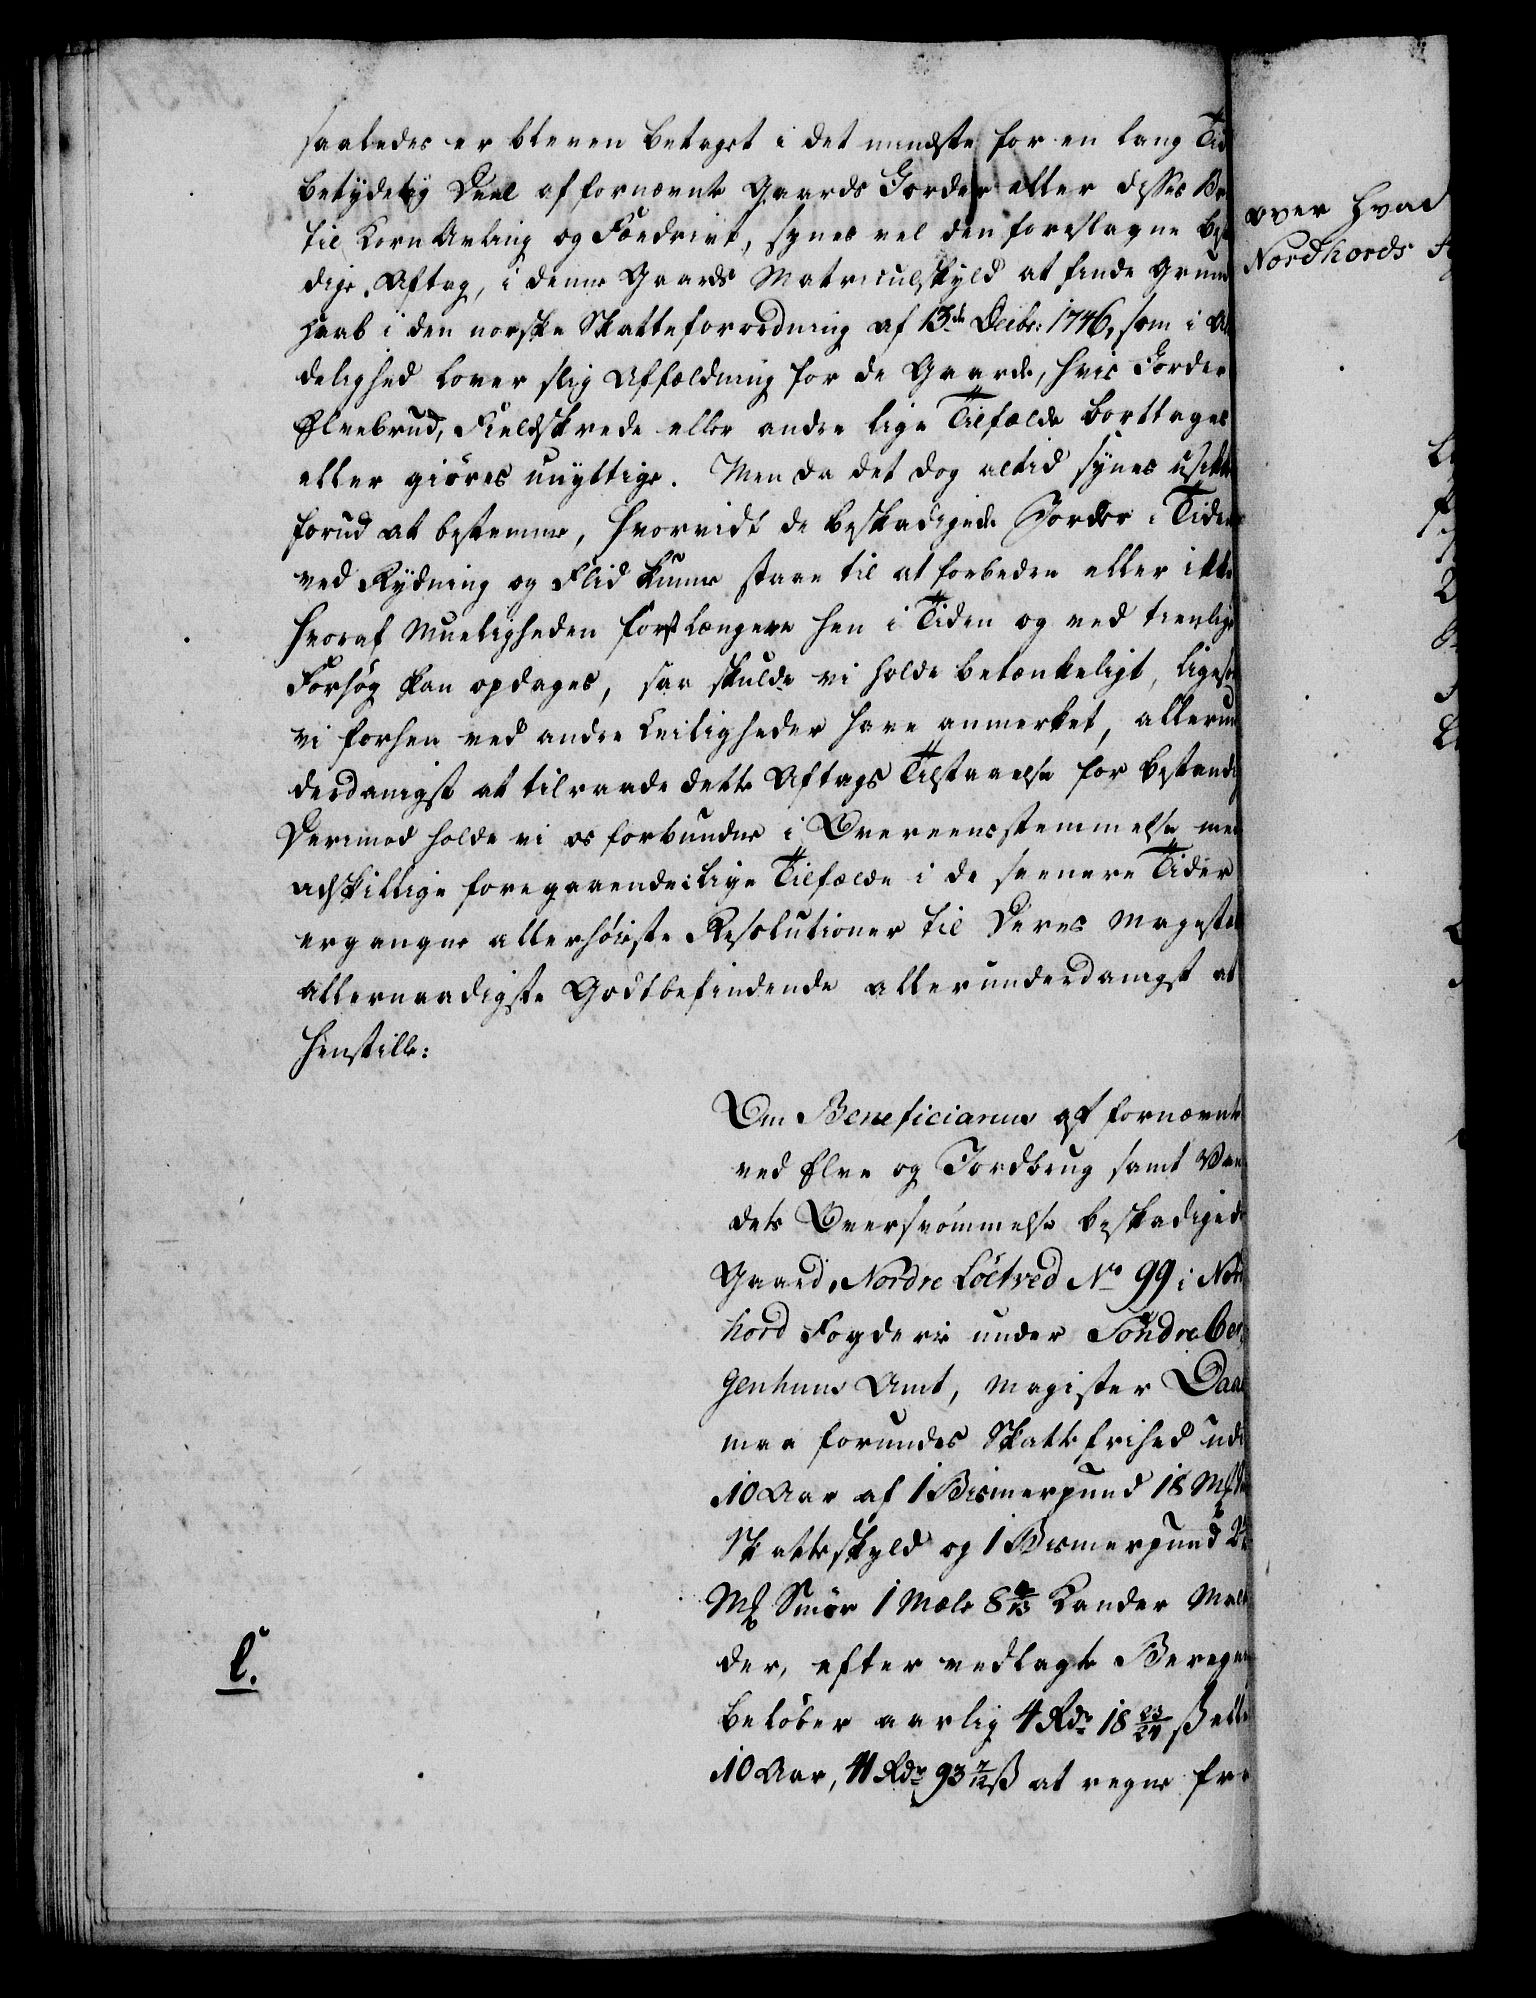 saaledes er bleven betaget i det mindste for en lang Tid
betydelig Deel af fornævnte Gaards Jorder eller disses
til Korn Avling og Foedrivt, synes vel den foreslagne
dige Aftag, i denne Gaards Matriculskyld at finde Grund
Haab i den norske Skatteforordning af 13de Decbr: 1746, som i
delighed lover slig Affældning for de Gaarde, hvis Jorder
Elvebrud, Fieldskrede eller andre lige Tilfælde borttages
eller giöres unyttige. Men da det dog altid synes usikkert
forud at bestemme, hvorvidt de beskadigede Jorder i Tiden
ved Rydning og Flid kunne staae til at forbedre eller ikke
hvoraf Mueligheden först længere hen i Tiden og ved tienlige
Forsög kan opdages, saa skulde vi holde betænkeligt, ligesom
vi forhen ved andre Leiligheder have anmerket, allerun
derdanigst at tilraade dette Aftags Tilstaaelse for bestandig
Derimod holde vi os forbundne i Overeensstemmelse med
adskillige foregaaende lige Tilfælde i de seenere Tider
ergangne allerhöieste Resolutioner til Deres Majestæts
allernaadigste Godtbefindende allerunderdanigst at
henstille:
Om Beneficiarius af fornævnte
ved Elve og Jordbrug samt Van
dets Oversvömmelse beskadigede
Gaard, Nordre Löetved No 99 i Nord
hord Fogderie under Söndre Ber
genhuus Amt, Magister Daae
maa forundes Skattefrihed udi
10 Aar af 1 Bismerpund 18 Mk
Skatteskyld og 1 Bismerpund
Mk Smör 1 Mæle 8 4/13 Kander Malt
der, efter vedlagte Beregning
l.
belöber aarlig 4 Rdr 18 23/24 ß eller
10 Aar, 41 Rdr 93 7/12 ß at regne fra
over hvad
Nordhords